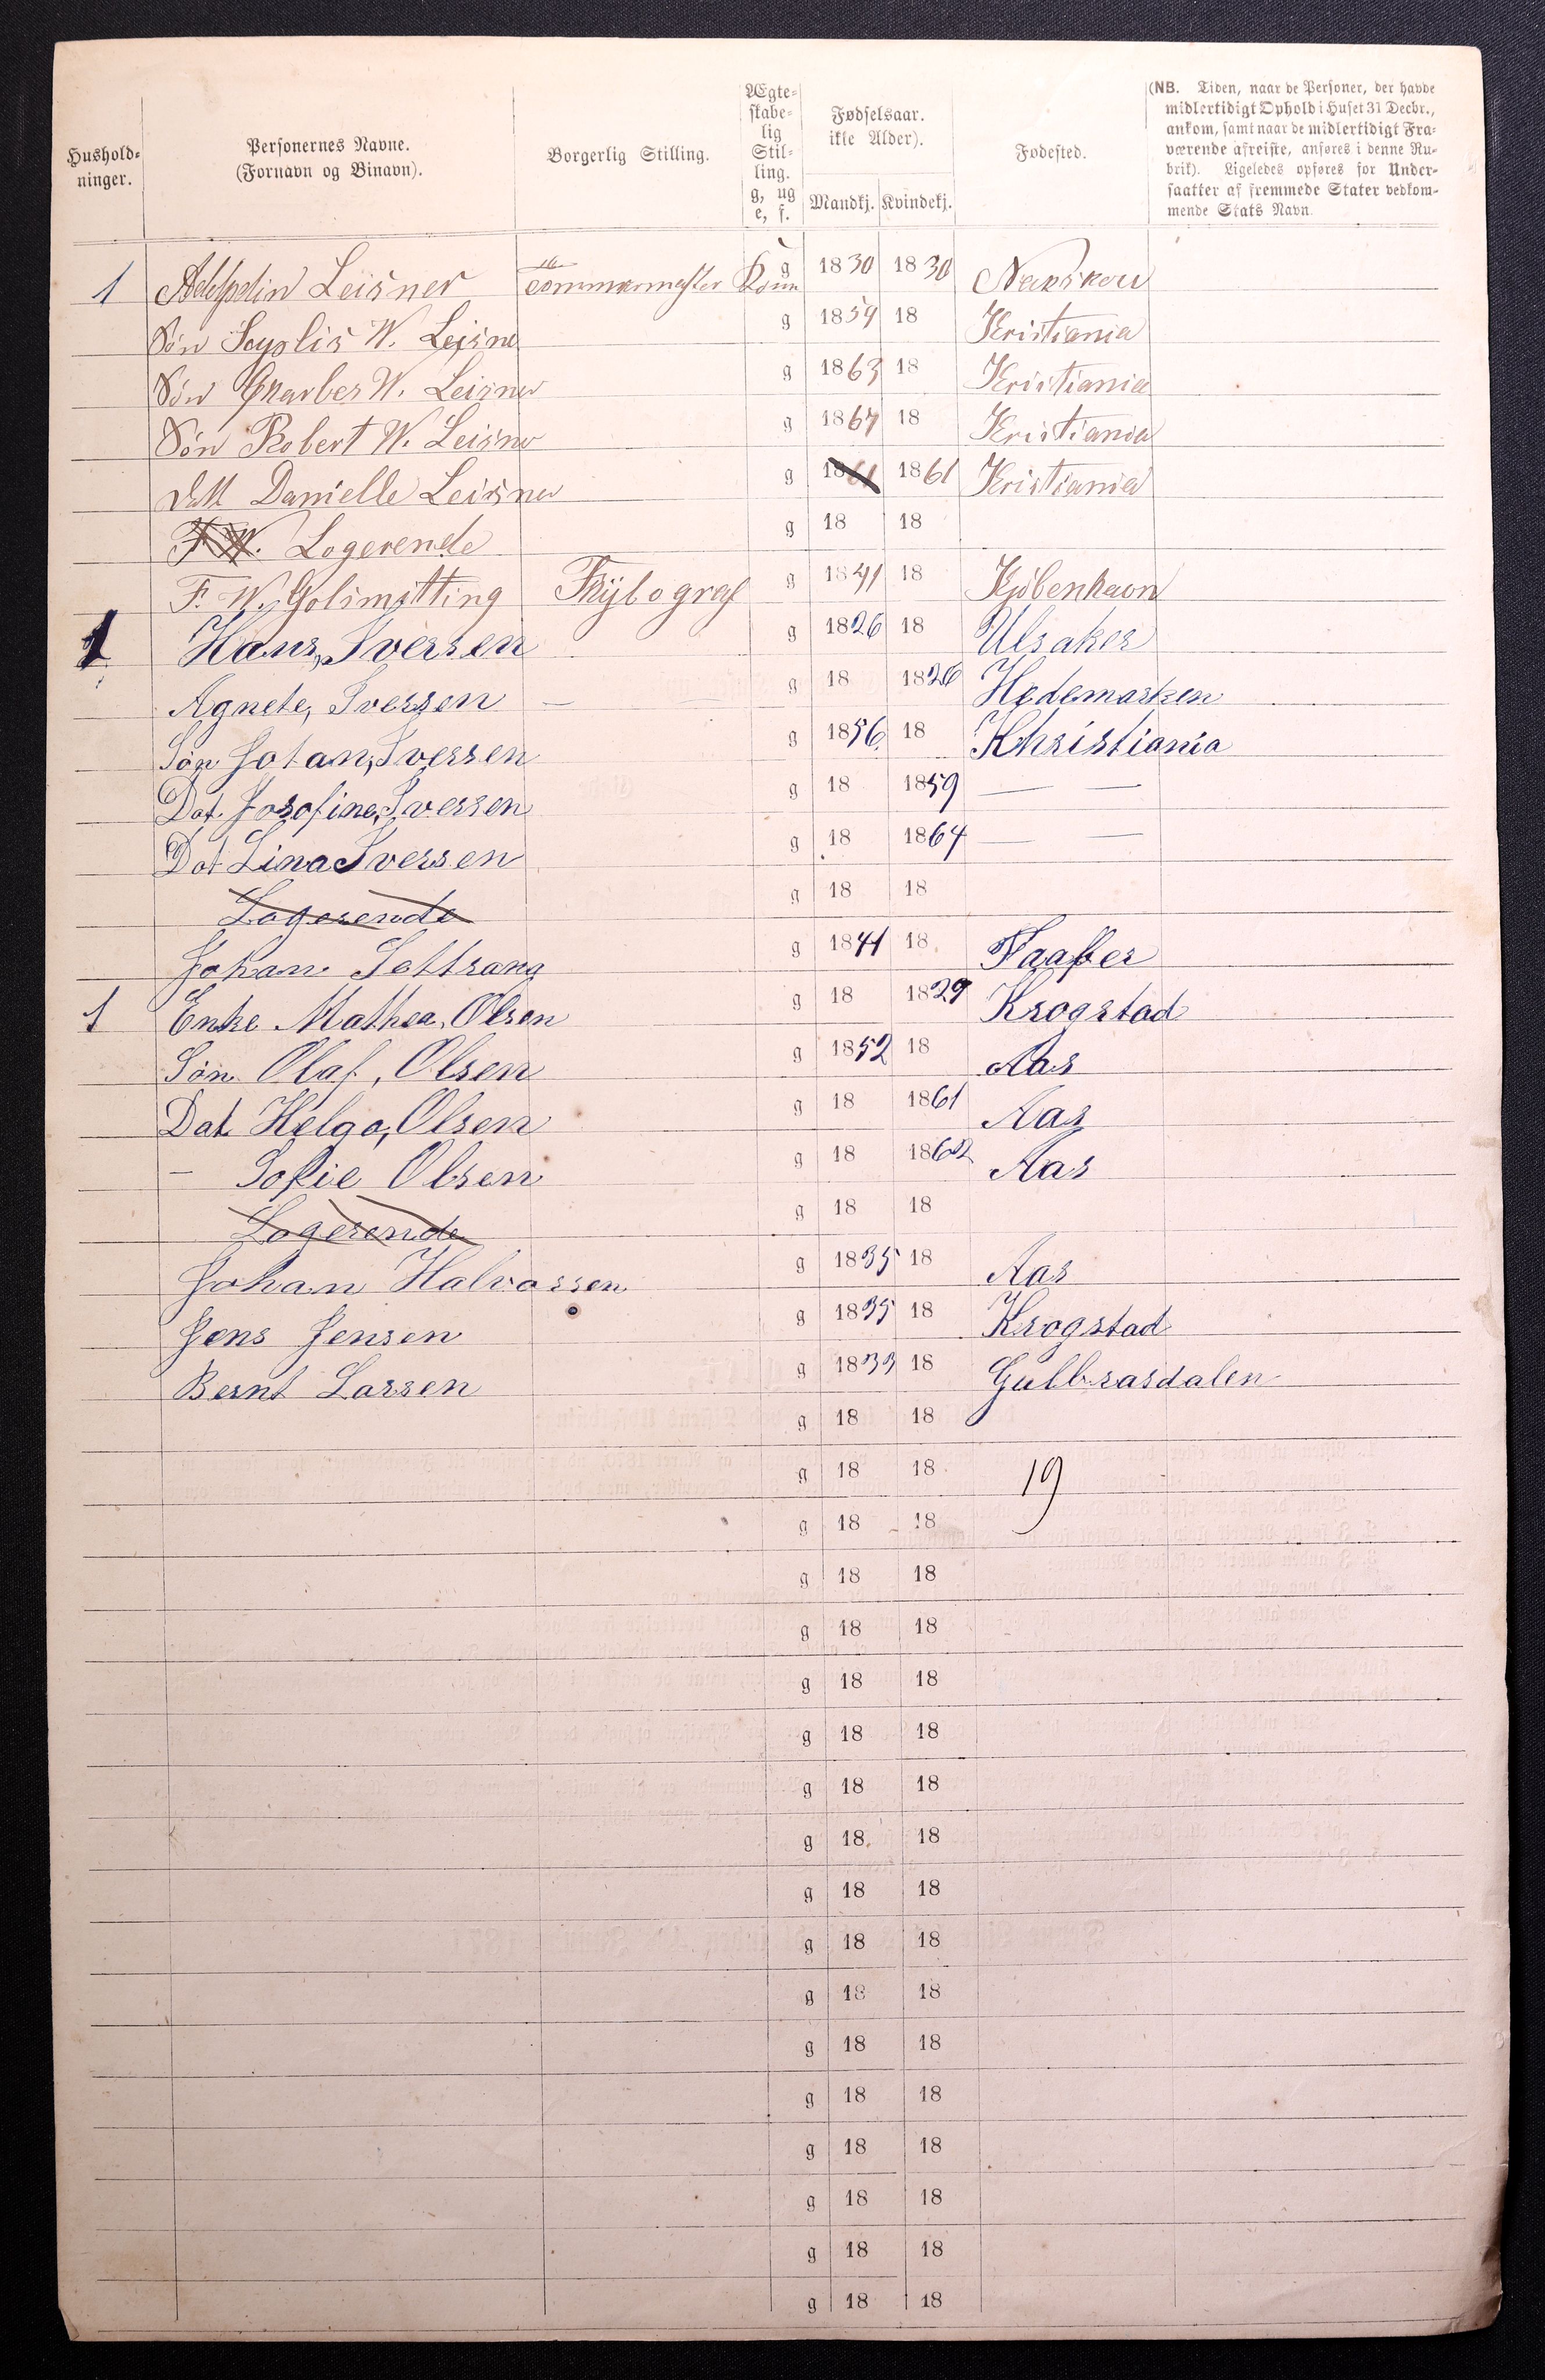 Hushold-
ninger.
Personernes Navne.
(Fornavn og Binavn).
Borgerlig Stilling.
Ægte-
skabe-
lig
Stil-
ling.
g, ug
e, f.
Fødselsaar.
ikke Alder).
Mandkj. Kvindekj.
Fødested.
(NB. Tiden, naar de Personer, der havde
midlertidigt Ophold i Huset 31 Decbr.,
ankom, samt naar de midlertidigt Fra-
værende afreiste, anføres i denne Ru-
brik). Ligeledes opføres for Under-
saatter af fremmede Stater vedkom-
mende Stats Navn.
1 Leisner Tømmermester Kone g 1830 1830 Nakskou
Søn W. Leisne g 1859 18 Kristiania
Søn Charles W. Leisner g 1863 18 Kristiania
Søn Robert W. Leisne g 1867 18 Kristiania
Datt Danielle Leisner g 1861 1861 Kristiania
F W. Logerende g 18 18
F. W. Xÿlograf g 1841 18 Kjöbenhavn
1 Hans, Iversen g 1826 18 Ulsaker
Agnete, Iversen — g 18 1826 Hedemarken
Søn Johan, Iversen g 1856 18 Khristiania
Dat. Josofine, Iversen g 18 1859 — —
Dat Lina Iversen g 18 1864 — —
Logerende g 18 18
Johan g 1841 18
1 Enke Mathea, Olsen g 18 1829 Krogstad
Søn Olaf, Olsen g 1852 18 Aas
Dat. Helga, Olsen g 18 1861 Aas
— Sofie Olsen g 18 1862 Aas
Logerende g 18 18
Johan Halvorsen g 1835 18 Aas
Jens Jensen g 1835 18 Krogstad
Bernt Larsen g 1833 18 Gulbrasdalen
g 18 18
g 18 18 19
g 18 18
g 18 18
g 18 18
g 18 18
g 18 18
g 18 18
g 18 18
g 18 18
g 18 18
g 18 18
g 18 18
g 18 18
g 18 18
g 18 18
g 18 18
g 18 18